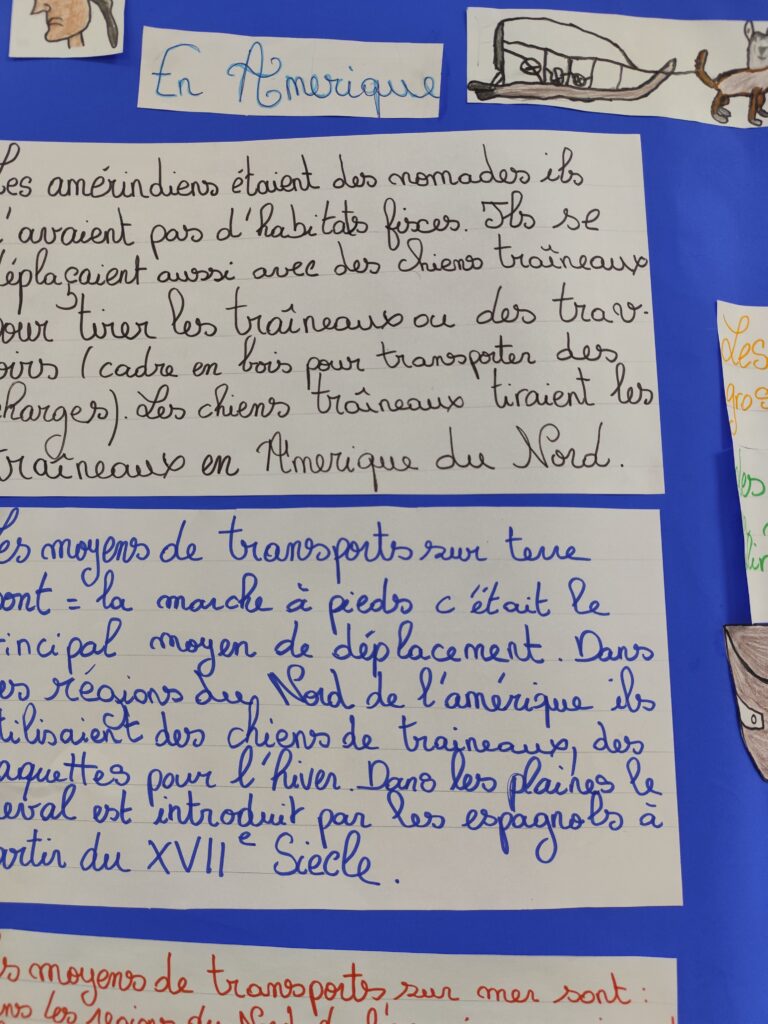 En Amerique
Les amérindiens étaient des nomades ils
n'avaient pas d'habitats fixces. Ils se
déplaçaient aussi avec des chiens traîneaux
pour tirer les traîneaux ou des trav-
oirs (cadre en bois pour transporter des
charges). Les chiens traîneaux tiraient les
traîneaux en Amerique du Nord.
Les moyens de transports sur terre
sont = la marche à pieds c'était le
principal moyen de déplacement. Dans
les régions du Nord de l'amérique ils
utilisaient des chiens de traineaux, des
raquettes pour l'hiver. Dans les plaines le
cheval est introduit par les espagnols à
partir du XVIIe Siècle.
Les moyens de transports sur mer sont :
Dans les régions du Nord de l'
Les
gros